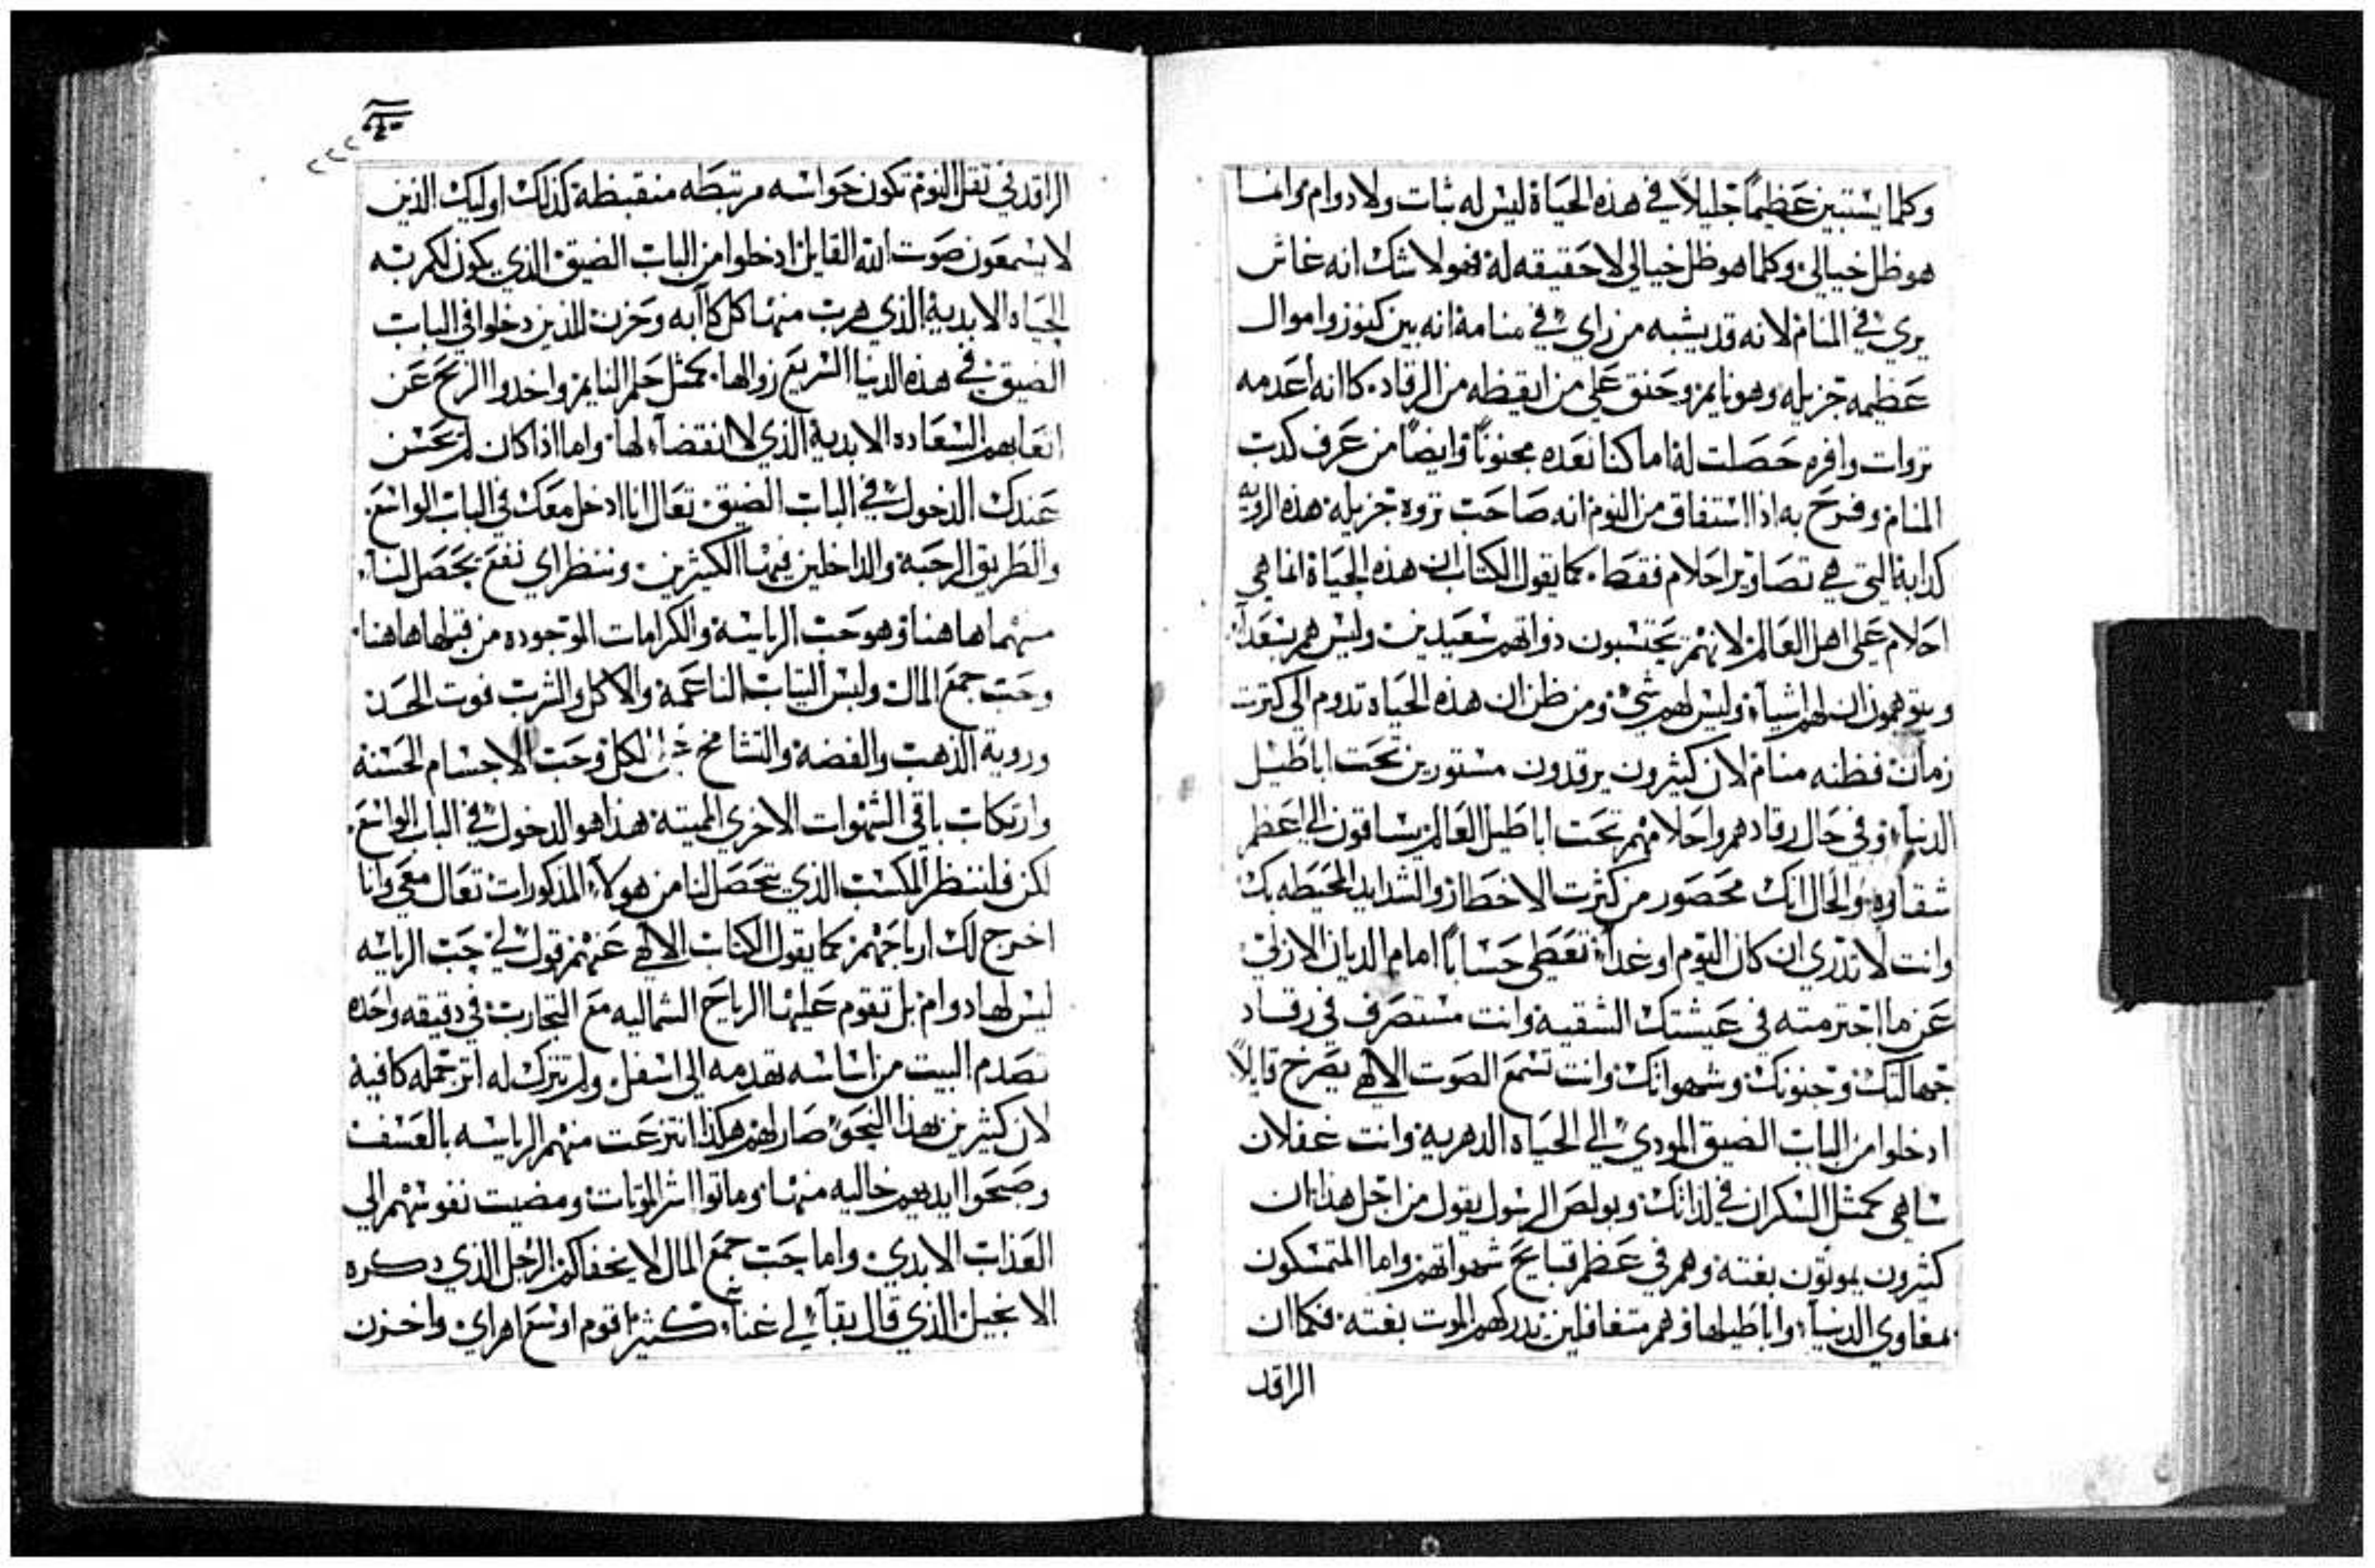 وكلما يستبين عظيمًا جليلاً في هذه الحياة ليس له ثبات ولا دوام وانما
هو ظل خيالي وكلما هو ظل خيالي لا حقيقه له فهو لا شك انه غاش
يري في المنام لانه قد يشبه من راي في منامة انه بين كنوز واموال
عظيمه جزيله وهو نايم وحنق علي من ايقظه من الرقاد كاانه أعدمه
تروات وافره حصلت له اما كنا نعده مجنونًا وايضًا من عرف كدب
المنام وفرح به اذا استفاق من النوم انه صاحب تروه جزيله هذه الرويه
كدابة التي هي تصاوير احلام فقط كما يقول الكتاب ان هذه الحياة انما هي
احلام علي اهل العالم لانهم يحتسبون ذواتهم سعيدين وليس هم بسعدآ
ويتوهمون ان لهم اشيآء وليس لهم شيء ومن ظن ان هذه الحياه تدوم الي كترت
زمان فظنه منام لان كثيرون يرقدون مستورين تحت اباطيل
الدنيآ وفي حال رقادهم واحلامهم تحت اباطيل العالم يساقون الي اعظم
شقاوه والحال انك محصور من كثرت الاخطار والشدايد المحيطه بك
وانت لا تدري ان كان اليوم او غدآ تعطي حسابًا امام الديان الازلي
عن ما اجترمته في عيشتك الشقية وانت مستصرف في رقاد
جهالتك وجنونك وشهواتك وانت تسمع الصوت الالهي يصرخ قايلاً
ادخلوا من الباب الضيق المودي الي الحياه الدهرية وانت غفلان
ساهي كمثل السكران في لذاتك وبولص الرسول يقول من اجل هذا ان
كثيرون يموتون بغتة وهم في عظم قبايح شهواتهم واما المتمسكون
بمغاوي الدنيآ واباطيلها وهم متغافلين تدركهم الموت بغته فكما ان
الراقد
٢٢٢
الراقد في تقل النوم تكون حواسه مرتبطه منقبظة كذلك اوليك الذين
لا يسمعون صوت الله القايل ادخلوا من الباب الضيق الذي يكون لكم به
الحياه الابدية الذي هرب منها كل كاآبه وحزن للذين دخلوا في الباب
الضيق في هذه الدنيا السريع زوالها كمثل حلم النايم واخدوا الربح عن
اتعابهم السعاده الابدية الذي لا انقضآء لها واما اذا كان لم عسن
عندك الدخول في الباب الضيق تعال انا ادخل معك في الباب الواسع
والطريق الرحبة والداخلين فيها الكثيرين وننظر اي نفع يحصل لنا
منهما هاهنا وهو حب الرياسة والكرامات الموجوده من قبلها هاهنا
وحب جمع المال ولبس التياب الناعمة والاكل والشرب فوت الحد
وروية الذهب والفضة والتشامخ علي الكل وحب الاجسام الحسنة
وارتكاب باقي الشهوات الاخري المميتة هذا هو الدخول في الباب الواسع
لكن فلننظر المكسب الذي يتحصل لنا من هولآء المذكورات تعال معي وانا
اخرج لك ارباحهم كما يقول الكتاب الالهي عنهم قول لي حب الرياسه
ليس لها دوام بل تقوم عليها الرياح الشماليه مع التجارب في دقيقه واحده
تصدم البيت من اساسه تهدمه الي اسفل ولم تترك له اتر جمله كافية
لان كثيرين بهذا النحو صار لهم هكذا انتزعت منهم الرياسه بالعسف
وصبحوا ايديهم خاليه منها وماتوا اشر الموتات ومضيت نفوسهم الي
العذاب الابدي واما حب جمع المال لا يخفاكم الرجل الذي دكره
الانجيل الذي قال بقآ لي غنآء كثير اقوم اوسع اهراي واخزن